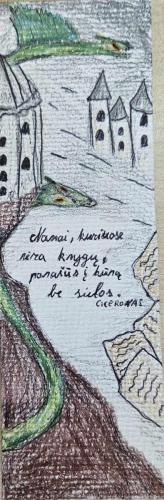 Namai, kuriuose
nėra knygų,
panašūs į kūną
be sielos.
CICERONAS